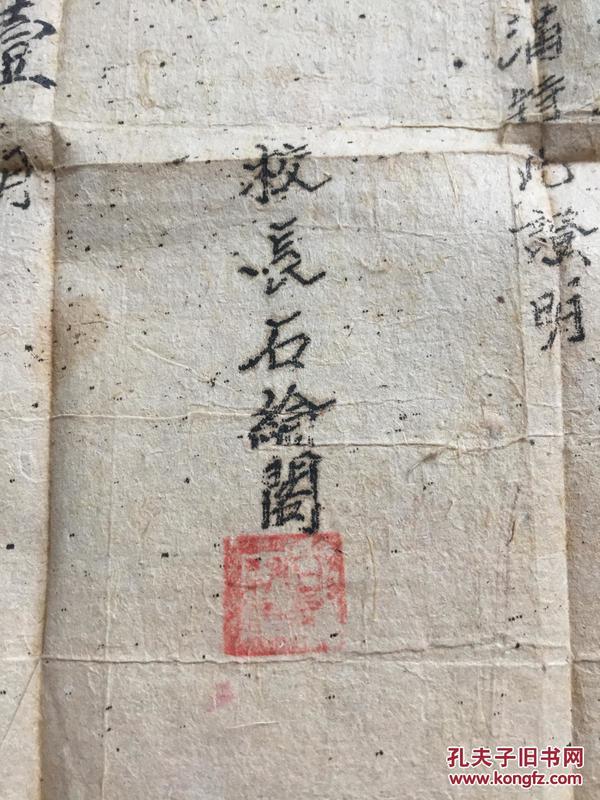 滿特此證明
校長石綸閣
壹月
孔夫子旧书网
www.kongfz.com